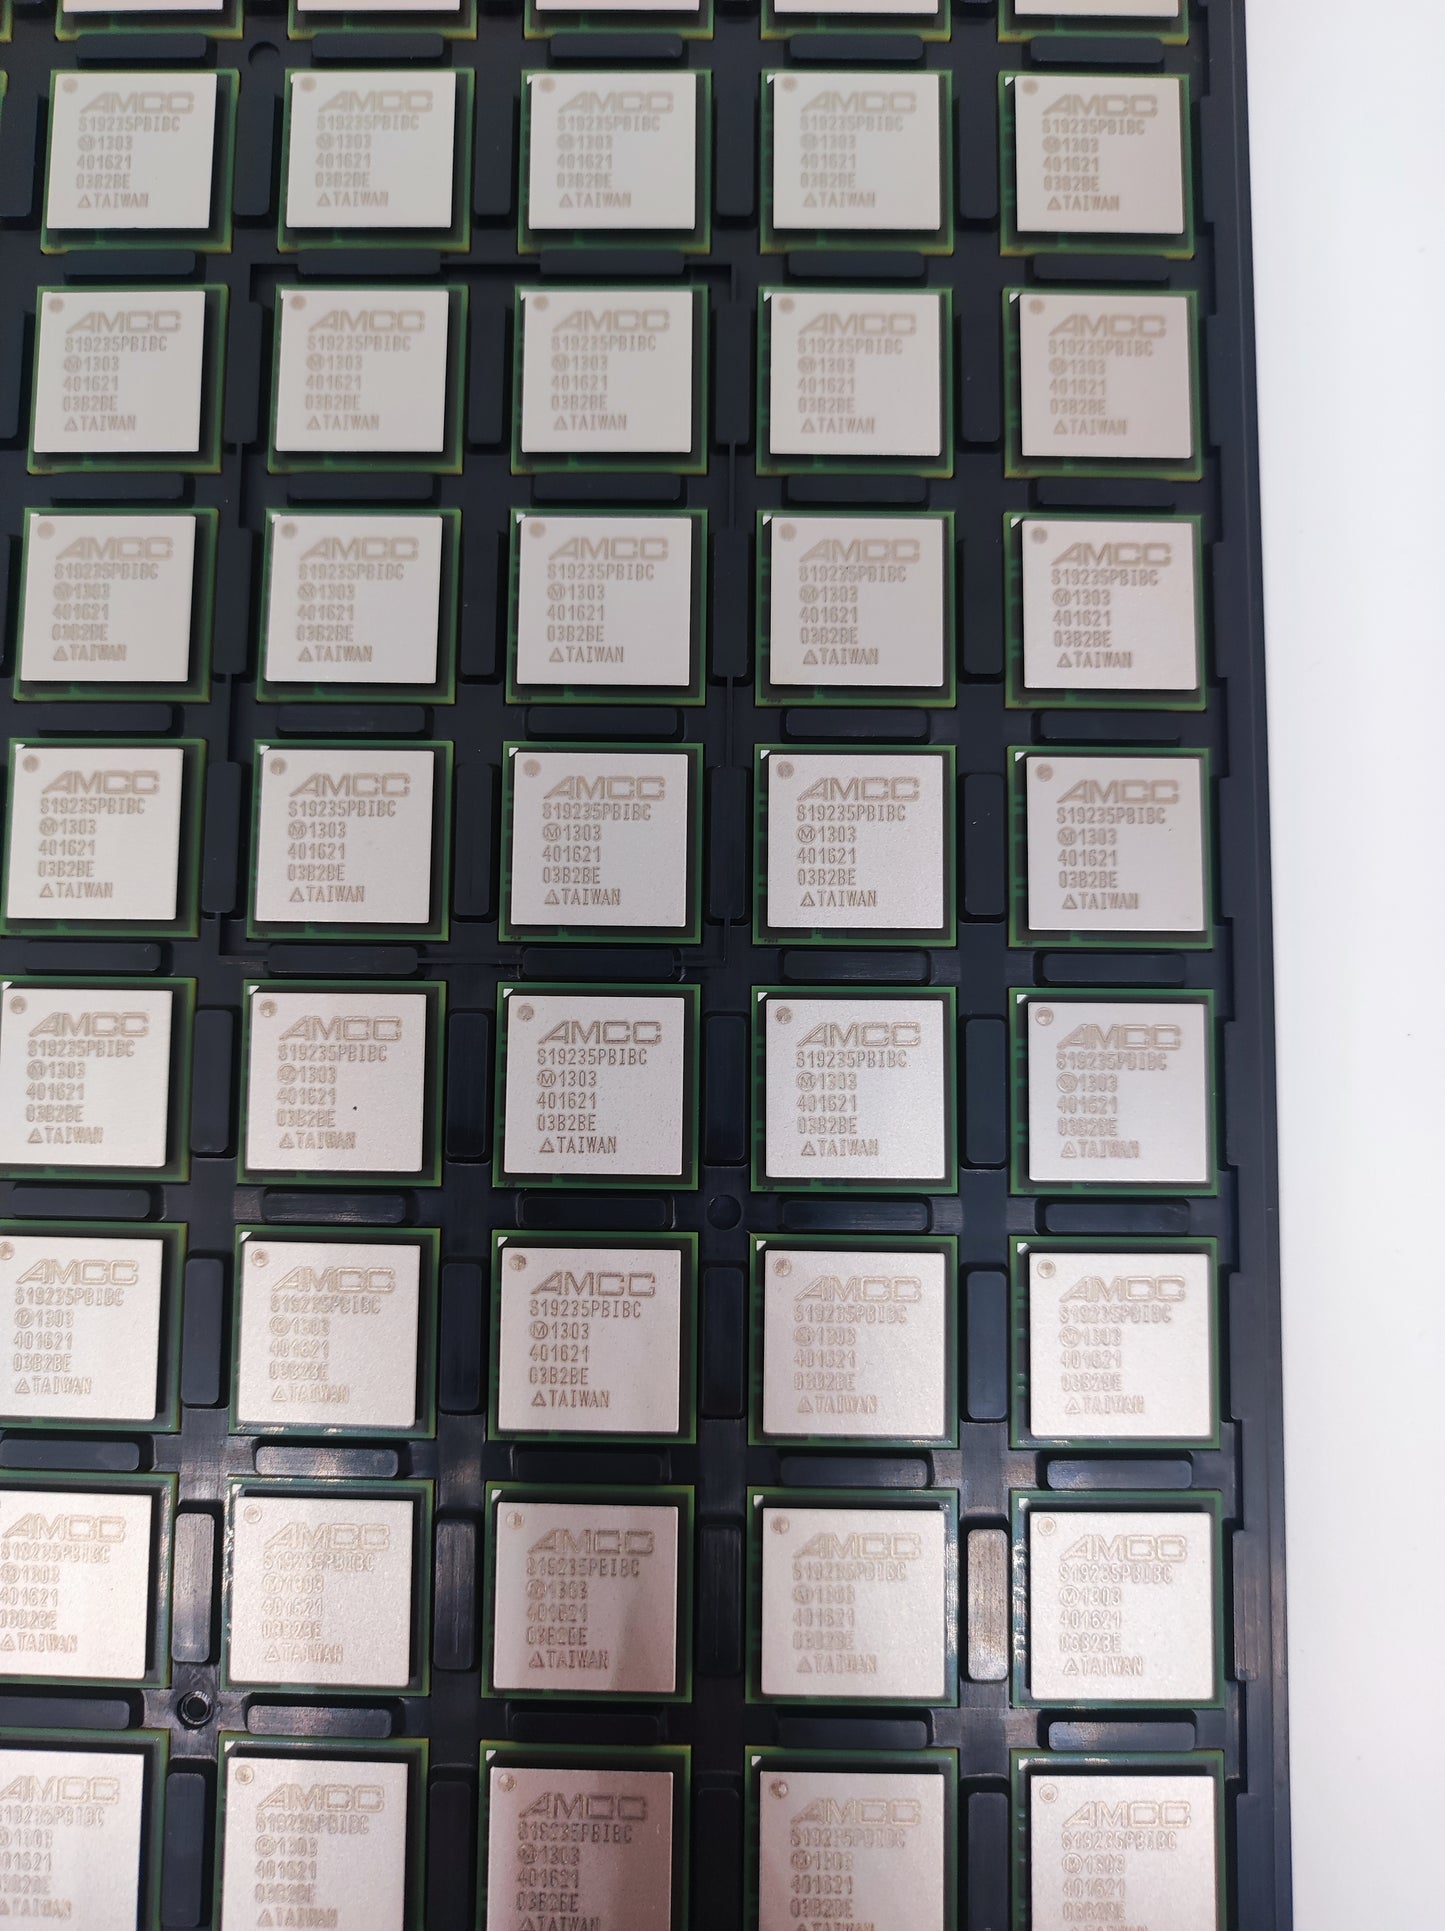 AMCC AMCC AMCC AMCC AMCC
S19235PBIBC S19235PBIBC S19235PBIBC S19235PBIBC S19235PBIBC
Ⓜ1303 Ⓜ1303 Ⓜ1303 Ⓜ1303 Ⓜ1303
401621 401621 401621 401621 401621
03B2BE 03B2BE 03B2BE 03B2BE 03B2BE
△TAIWAN △TAIWAN △TAIWAN △TAIWAN △TAIWAN
AMCC AMCC AMCC AMCC AMCC
S19235PBIBC S19235PBIBC S19235PBIBC S19235PBIBC S19235PBIBC
Ⓜ1303 Ⓜ1303 Ⓜ1303 Ⓜ1303 Ⓜ1303
401621 401621 401621 401621 401621
03B2BE 03B2BE 03B2BE 03B2BE 03B2BE
△TAIWAN △TAIWAN △TAIWAN △TAIWAN △TAIWAN
AMCC AMCC AMCC AMCC AMCC
S19235PBIBC S19235PBIBC S19235PBIBC S19235PBIBC S19235PBIBC
Ⓜ1303 Ⓜ1303 Ⓜ1303 Ⓜ1303 Ⓜ1303
401621 401621 401621 401621 401621
03B2BE 03B2BE 03B2BE 03B2BE 03B2BE
△TAIWAN △TAIWAN △TAIWAN △TAIWAN △TAIWAN
AMCC AMCC AMCC AMCC AMCC
S19235PBIBC S19235PBIBC S19235PBIBC S19235PBIBC S19235PBIBC
Ⓜ1303 Ⓜ1303 Ⓜ1303 Ⓜ1303 Ⓜ1303
401621 401621 401621 401621 401621
03B2BE 03B2BE 03B2BE 03B2BE 03B2BE
△TAIWAN △TAIWAN △TAIWAN △TAIWAN △TAIWAN
AMCC AMCC AMCC AMCC AMCC
S19235PBIBC S19235PBIBC S19235PBIBC S19235PBIBC S19235PBIBC
Ⓜ1303 Ⓜ1303 Ⓜ1303 Ⓜ1303 Ⓜ1303
401621 401621 401621 401621 401621
03B2BE 03B2BE 03B2BE 03B2BE 03B2BE
△TAIWAN △TAIWAN △TAIWAN △TAIWAN △TAIWAN
AMCC AMCC AMCC AMCC AMCC
S19235PBIBC S19235PBIBC S19235PBIBC S19235PBIBC S19235PBIBC
Ⓜ1303 Ⓜ1303 Ⓜ1303 Ⓜ1303 Ⓜ1303
401621 401621 401621 401621 401621
03B2BE 03B2BE 03B2BE 03B2BE 03B2BE
△TAIWAN △TAIWAN △TAIWAN △TAIWAN △TAIWAN
AMCC AMCC AMCC AMCC AMCC
S19235PBIBC S19235PBIBC S19235PBIBC S19235PBIBC S19235PBIBC
Ⓜ1303 Ⓜ1303 Ⓜ1303 Ⓜ1303 Ⓜ1303
401621 401621 401621 401621 401621
03B2BE 03B2BE 03B2BE 03B2BE 03B2BE
△TAIWAN △TAIWAN △TAIWAN △TAIWAN △TAIWAN
AMCC AMCC AMCC AMCC AMCC
S19235PBIBC S19235PBIBC S19235PBIBC S19235PBIBC
1303 Ⓜ1303 Ⓜ1303 Ⓜ1303 Ⓜ1303
401621 401621 401621 401621
03B2BE 03B2BE 03B2BE 03B2BE
△TAIWAN △TAIWAN